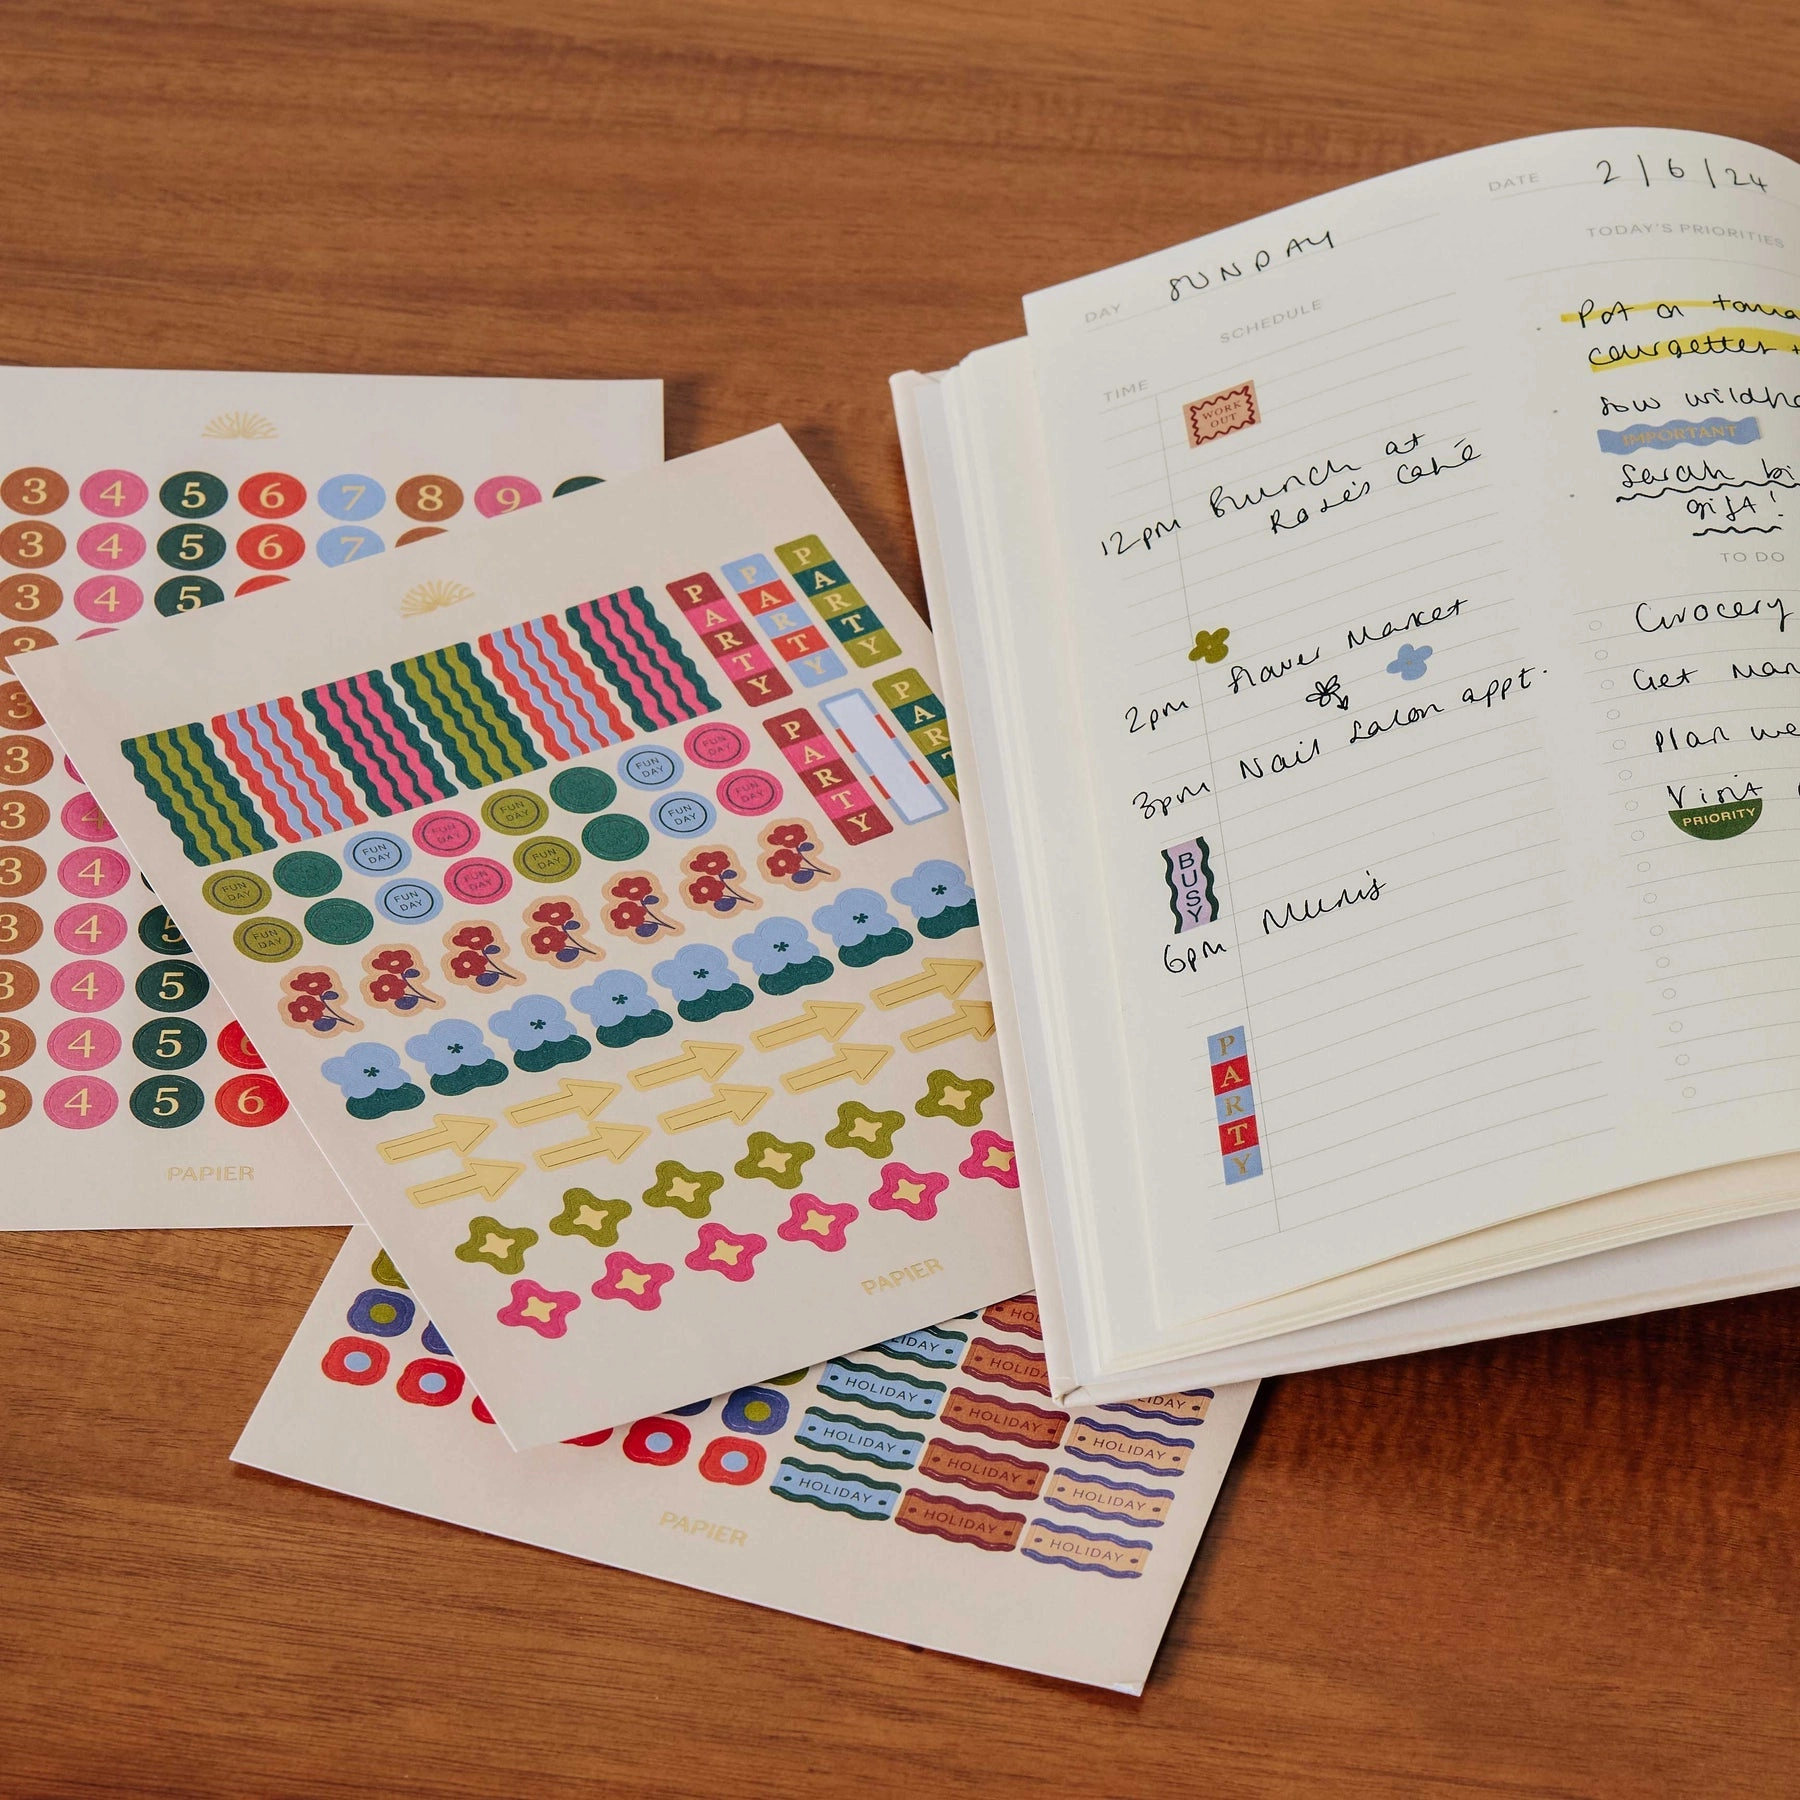 3 4 5 6 7 8 9
3 4 5 6 7
3 4 5
3
3
3
3 4
3 4
3 4 5
3 4 5
3 4 5 6
3 4 5 6
PAPIER
PARTY PARTY PARTY
PARTY PARTY
FUN DAY FUN DAY FUN DAY FUN DAY FUN DAY FUN DAY
FUN DAY FUN DAY FUN DAY FUN DAY FUN DAY FUN DAY
PAPIER
HOLIDAY
HOLIDAY HOLIDAY
HOLIDAY HOLIDAY HOLIDAY
HOLIDAY HOLIDAY HOLIDAY
HOLIDAY HOLIDAY HOLIDAY
PAPIER
DAY SUNDAY
SCHEDULE
TIME
WORK
OUT
12pm Brunch at
Rosie's Café
2pm flower Market
3pm Nail Salon appt.
BUSY
6pm Mum's
PARTY
DATE 2/6/24
TODAY'S PRIORITIES
Pot on
courgettes +
Sow
IMPORTANT
Sarah
gift!
TO DO
Grocery
Get
Plan
Visit
PRIORITY